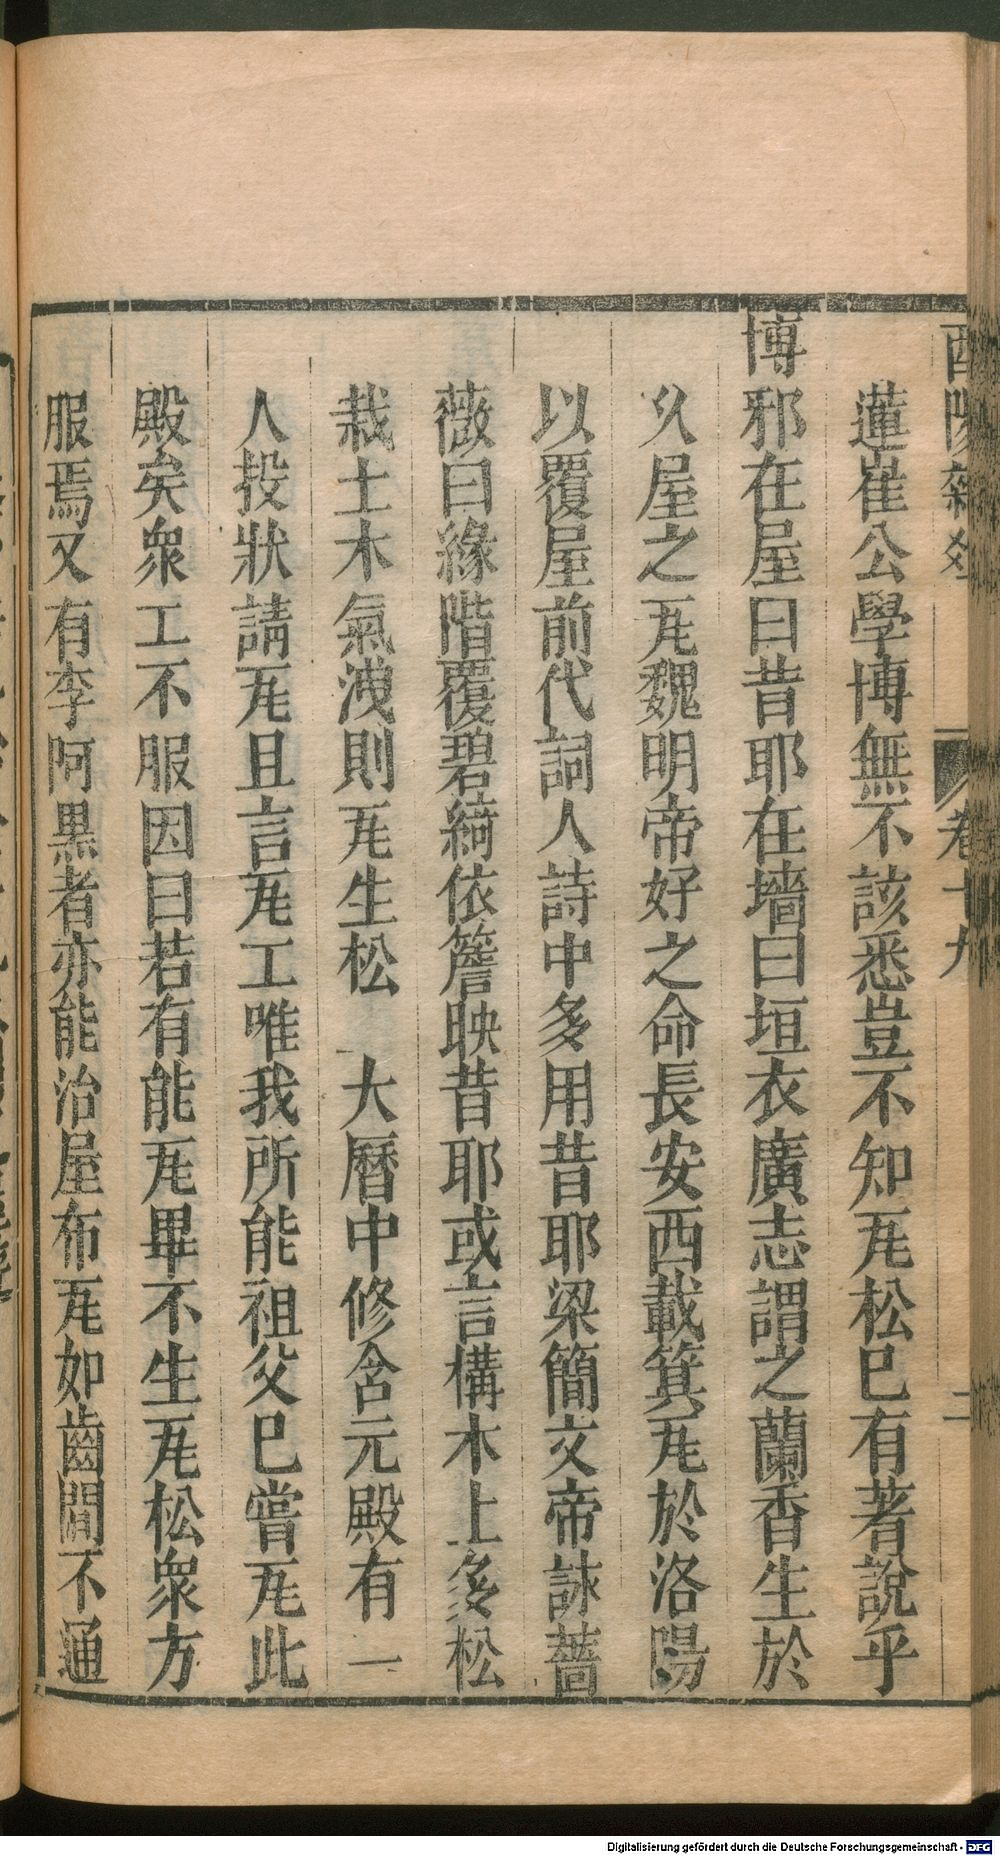 酉陽雜俎 卷十九 二
蓮崔公學博無不該悉豈不知瓦松巳有著說乎
博邪在屋曰昔耶在墻曰垣衣廣志謂之蘭香生於
久屋之瓦魏明帝好之命長安西載箕瓦於洛陽
以覆屋前代詞人詩中多用昔耶梁簡文帝詠薔
薇曰緣階覆碧綺依簷映昔耶或言構木上多松
栽土木氣洩則瓦生松 大曆中修含元殿有一
人投狀請瓦且言瓦工唯我所能祖父巳嘗瓦此
殿矣衆工不服因曰若有能瓦畢不生瓦松衆方
服焉又有李阿黑者亦能治屋布瓦如齒間不通
Digitalisierung gefördert durch die Deutsche Forschungsgemeinschaft - DFG